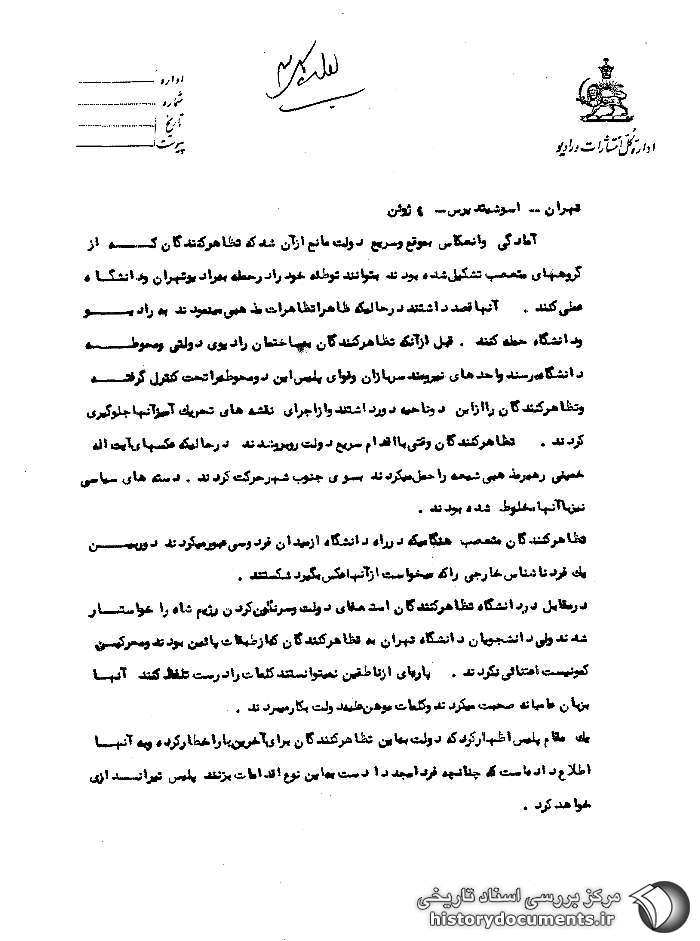 اداره
شماره
تاریخ
پیوست
اداره کل انتشارات و رادیو
تهران -- اسوشیتد پرس -- ۴ ژوئن
آمادگی وانعکاس بموقع وسریع دولت مانع ازآن شد که تظاهرکنندگان که از
گروههای متعصب تشکیل شده بودند بتوانند توطئه خود را درحمله به رادیوتهران ودانشگاه
عملی کنند . آنها قصد داشتند درحالیکه ظاهرا تظاهرات مذهبی مینمودند به رادیو
ودانشگاه حمله کنند . قبل ازآنکه تظاهرکنندگان بساختمان رادیوی دولتی ومحوطه
دانشگاه برسند واحدهای نیرومند سربازان وقوای پلیس این دومحوطه راتحت کنترل گرفته
وتظاهرکنندگان را ازاین دوناحیه دورداشتند وازاجرای نقشه های تحریک آمیزآنها جلوگیری
کردند . تظاهرکنندگان وقتی بااقدام سریع دولت روبروشدند درحالیکه عکسهای آیت اله
خمینی رهبرمذهبی شیعه را حمل میکردند بسوی جنوب شهرحرکت کردند . دسته های سیاسی
نیزباآنها مخلوط شده بودند .
تظاهرکنندگان متعصب هنگامیکه درراه دانشگاه ازمیدان فردوسی عبورمیکردند دوربین
یک فرد ناشناس خارجی راکه میخواست ازآنهاعکس بگیرد شکستند .
درمقابل دردانشگاه تظاهرکنندگان استعفای دولت وسرنگون کردن رژیم شاه را خواستار
شدند ولی دانشجویان دانشگاه تهران به تظاهرکنندگان که ازطبقات پائین بودند ومحرکین
کمونیست اعتنائی نکردند . پاره‌ای ازناطقین نمیتوانستند کلمات رادرست تلفظ کنند آنها
بزبان عامیانه صحبت میکردند وکلمات موهن علیه دولت بکارمیبردند .
یک مقام پلیس اظهارکرد که دولت به این تظاهرکنندگان برای آخرین بار اخطارکرده وبه آنها
اطلاع داده است که چنانچه فردا مجددا دست به این نوع اقدامات بزنند پلیس تیراندازی
خواهد کرد .
مرکز بررسی اسناد تاریخی
historydocuments.ir